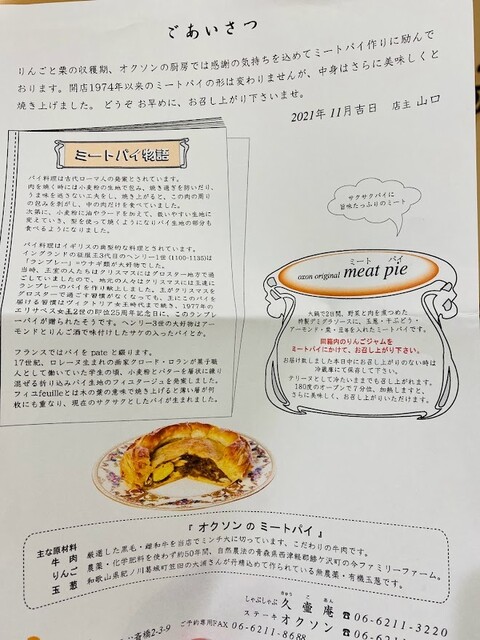 ごあいさつ
りんごと栗の収穫期、オクソンの厨房では感謝の気持ちを込めてミートパイ作りに励んで
おります。開店1974年以来のミートパイの形は変わりませんが、中身はさらに美味しくと
焼き上げました。どうぞお早めに、お召し上がり下さいませ。
2021年11月吉日 店主 山口
ミートパイ物語
パイ料理は古代ローマ人の発案とされています。
肉を焼く時には小麦粉の生地で包み、焼き過ぎを防いだり、
うま味を逃さない工夫をし、焼き上がると、この肉の周り
の包みを剥がし、中の肉だけを食べていました。
次第に、小麦粉に油やラードを加えて、扱いやすい生地に
変えていき、型を使って焼くようになりパイ生地の部分も
食べるようになりました。
パイ料理はイギリスの典型的な料理とされています。
イングランドの征服王3代目のヘンリー1世(1100-1135)は
「ランプレー」=ウナギ類が大好物でした。
当時、王室の人たちはクリスマスにはグロスター地方で過
ごしていましたので、地元の人々はクリスマスには王達に
ランプレーのパイを作り献上しました。王がクリスマスを
グロスターで過ごす習慣がなくなっても、王にこのパイを
届ける習慣はヴィクトリア女王時代まで続き、1977年のエ
リザベス女王2世の即位25周年記念日に、このランプレ
ーパイが贈られたそうです。ヘンリー3世の大好物はアー
モンドとりんご酒で味付けしたサケの入ったパイとか。
フランスではパイを pate と綴ります。
17世紀、ロレーヌ生まれの画家クロード・ロランが菓子職
人として働いていた学生の頃、小麦粉とバターを層状に練り
混ぜる折り込みパイ生地のフィユタージュを発案しました。
フィユfeuilleとは木の葉の意味で焼き上げると薄い層が何
枚にも重なり、現在のサクサクとしたパイが生まれました。
サクサクパイに
旨味たっぷりのミート
ミート パイ
oxon original meat pie
火鍋で2日間、野菜と肉を煮つめた
特製デミグラソースに、玉葱・干ぶどう・
アーモンド・栗・豆等を入れたミートパイです。
同箱内のりんごジャムを
ミートパイにかけて、お召し上がり下さい。
お届け致しました本日中にお召し上がりのない時は
冷蔵庫にて保存して下さい。
テリーヌとして冷たいままでも召し上がれます。
180度のオーブンで7分位、加熱しますと、
さらに美味しく、お召し上がりいただけます。
『オクソンのミートパイ』
主な原材料
牛肉 厳選した黒毛・雌和牛を当店でミンチ大に切っています。こだわりの牛肉です。
りんご 農薬・化学肥料を使わず約50年間、自然農法の青森県西津軽郡鯵ケ沢町の今ファミリーファーム。
玉葱 和歌山県紀ノ川葛城町笠田の大浦さんが丹精込めて作られている無農薬・有機玉葱です。
しゃぶしゃぶ 久壷庵 ☎06-6211-3220
ステーキ オクソン ☎06-
橋2-3-9 ご予約専用FAX 06-6211-8688